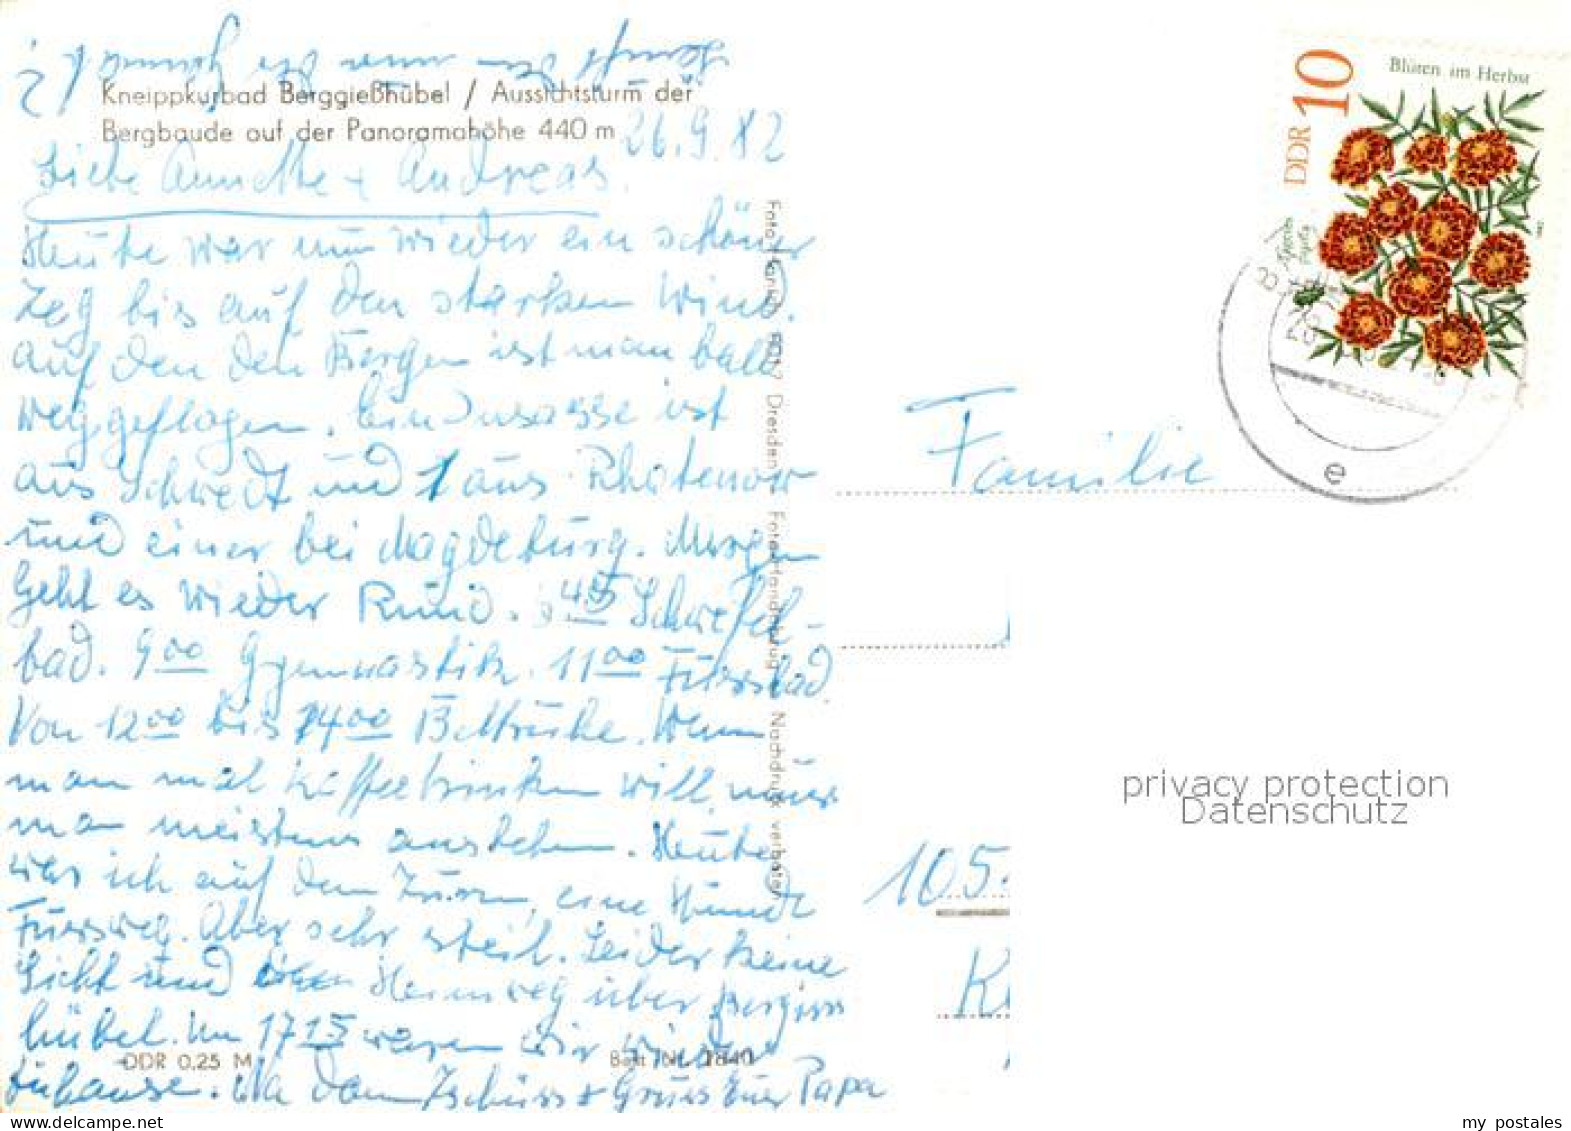 Kneippkurbad Berggießhübel / Aussichtsturm der
Bergbaude auf der Panoramahöhe 440 m
26.9.82
Liebe Annette + Andreas.
Heute war nun wieder ein schöner
Teg bis auf den starken Wind.
Auf den den Bergen ist man bald
weggeflogen. Ein Insasse ist
aus Schwedt und 1 aus Rhatenow
und einer bei Magdeburg. Morgen
Geht es wieder Rund. 45 Schwefel-
bad. 9 00 Gymnastik. 11 00 Fussbad.
Von 12 00 bis 14 00 Bettruhe. Wenn
man mal Kaffeetrinken will, muss
man meistens anstehen. Heute
war ich auf dem Turm, eine Stunde
Fussweg. Aber sehr steil. Leider keine
Sicht und Heimweg über Berggiess
hübel. Um 17 15 waren wir wieder
zuhause. Na dann Tschüss + Gruss Euer Papa
DDR 0,25 M
Best. Nr.
Dresden
Nachdruck verboten
DDR 10
Blüten im Herbst
e
Familie
105
K
privacy protection
Datenschutz
my postales
www.delcampe.net